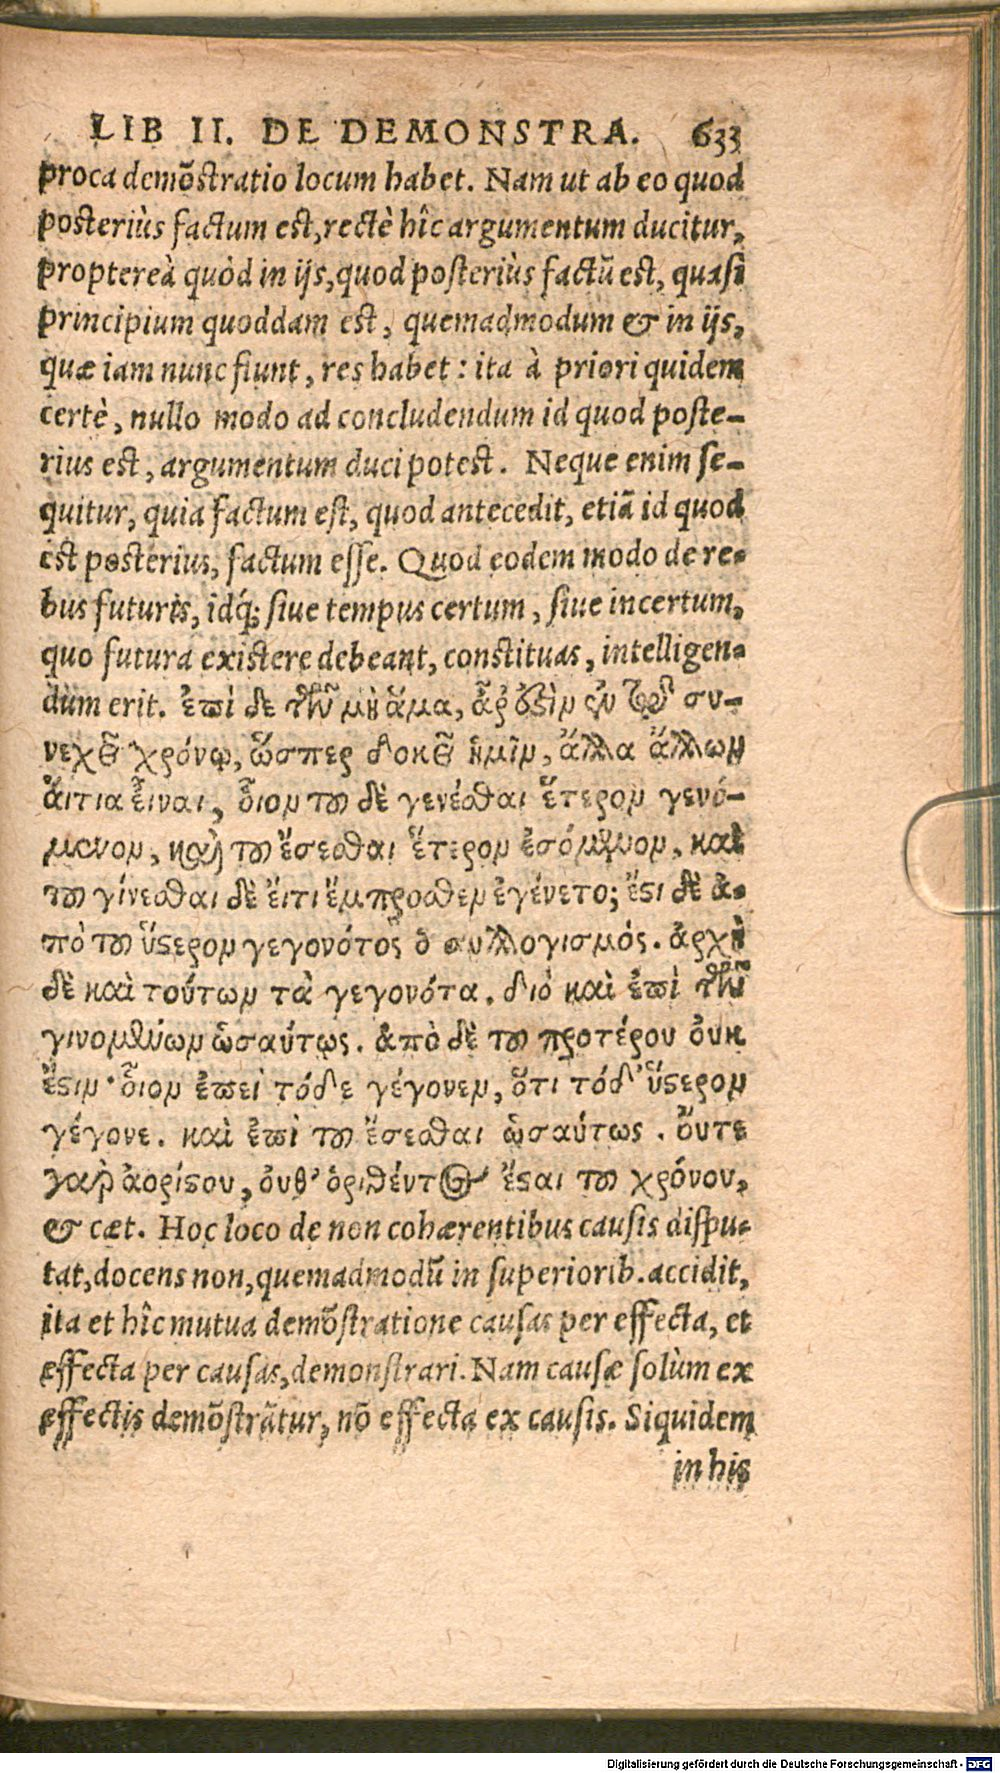 LIB II. DE DEMONSTRA. 633
proca demõstratio locum habet. Nam ut ab eo quod
posteriùs factum est, rectè hîc argumentum ducitur,
proptereà quòd in ijs, quod posteriùs factũ est, quasi
principium quoddam est, quemadmodum & in ijs,
quæ iam nunc fiunt, res habet: ita à priori quidem
certè, nullo modo ad concludendum id quod poste-
rius est, argumentum duci potest. Neque enim se-
quitur, quia factum est, quod antecedit, etiã id quod
est posterius, factum esse. Quod eodem modo de re-
bus futuris, idq́; siue tempus certum, siue incertum,
quo futura existere debeant, constituas, intelligen-
dum erit. ἐπὶ δὲ τῶν μὴ ἅμα, ἆρ' ἔστιν ἐν τῷ συ-
νεχεῖ χρόνῳ, ὥσπερ δοκεῖ ἡμῖν, ἄλλα ἄλλων
ἄιτια εἶναι, οἷον τοῦ δὲ γενέσθαι ἕτερον γενό-
μενον, καὶ τοῦ ἔσεσθαι ἕτερον ἐσόμενον, καὶ
τοῦ γίνεσθαι δὲ ἔιτι ἔμπροσθεν ἐγένετο; ἔστι δὲ ἀ-
πὸ τοῦ ὕστερον γεγονότος ὁ συλλογισμός. ἀρχὴ
δὲ καὶ τούτων τὰ γεγονότα. διὸ καὶ ἐπὶ τῶν
γινομένων ὡσαύτως. ἀπὸ δὲ τοῦ προτέρου ὀυκ
ἔστιν· οἷον ἐπεὶ τόδε γέγονεν, ὅτι τόδ' ὕστερον
γέγονε. καὶ ἐπὶ τοῦ ἔσεσθαι ὡσαύτως. ὄυτε
γὰρ ἀορίστου, ὀυθ' ὁρισθέντος ἔσται τοῦ χρόνου,
& cæt. Hoc loco de non cohærentibus causis dispu-
tat, docens non, quemadmodũ in superiorib. accidit,
ita et hîc mutua demõstratione causas per effecta, et
effecta per causas, demonstrari. Nam causæ solùm ex
effectis demõstrãtur, nõ effecta ex causis. Siquidem
in his
Digitalisierung gefördert durch die Deutsche Forschungsgemeinschaft - DFG